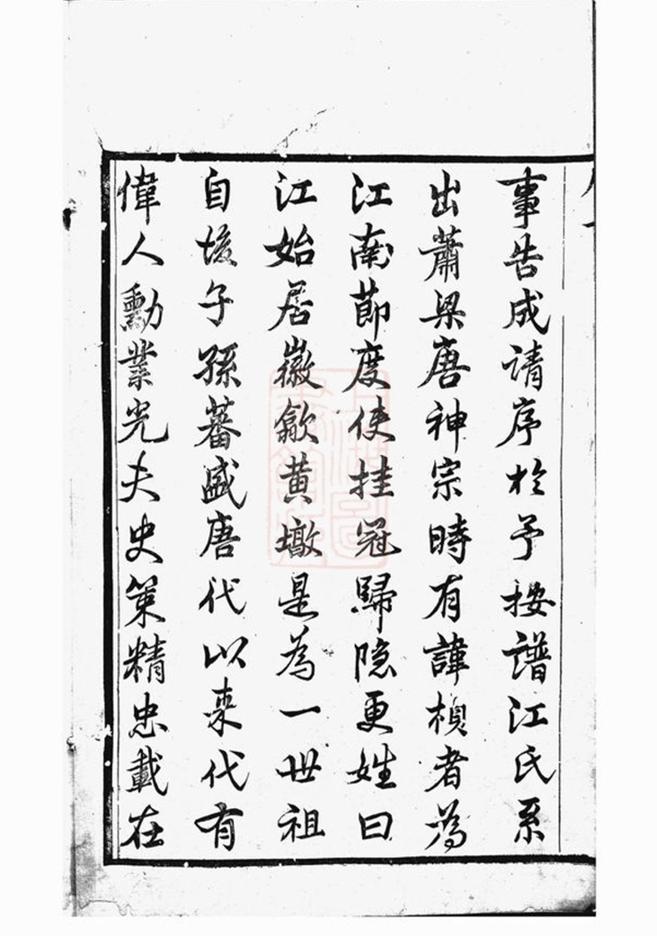 事告成請序於予按譜江氏系
出蕭梁唐神宗時有諱楨者為
江南節度使挂冠歸隐更姓曰
江始居徽歙黄墩是為一世祖
自後子孫蕃盛唐代以来代有
偉人勳業光夫史策精忠載在